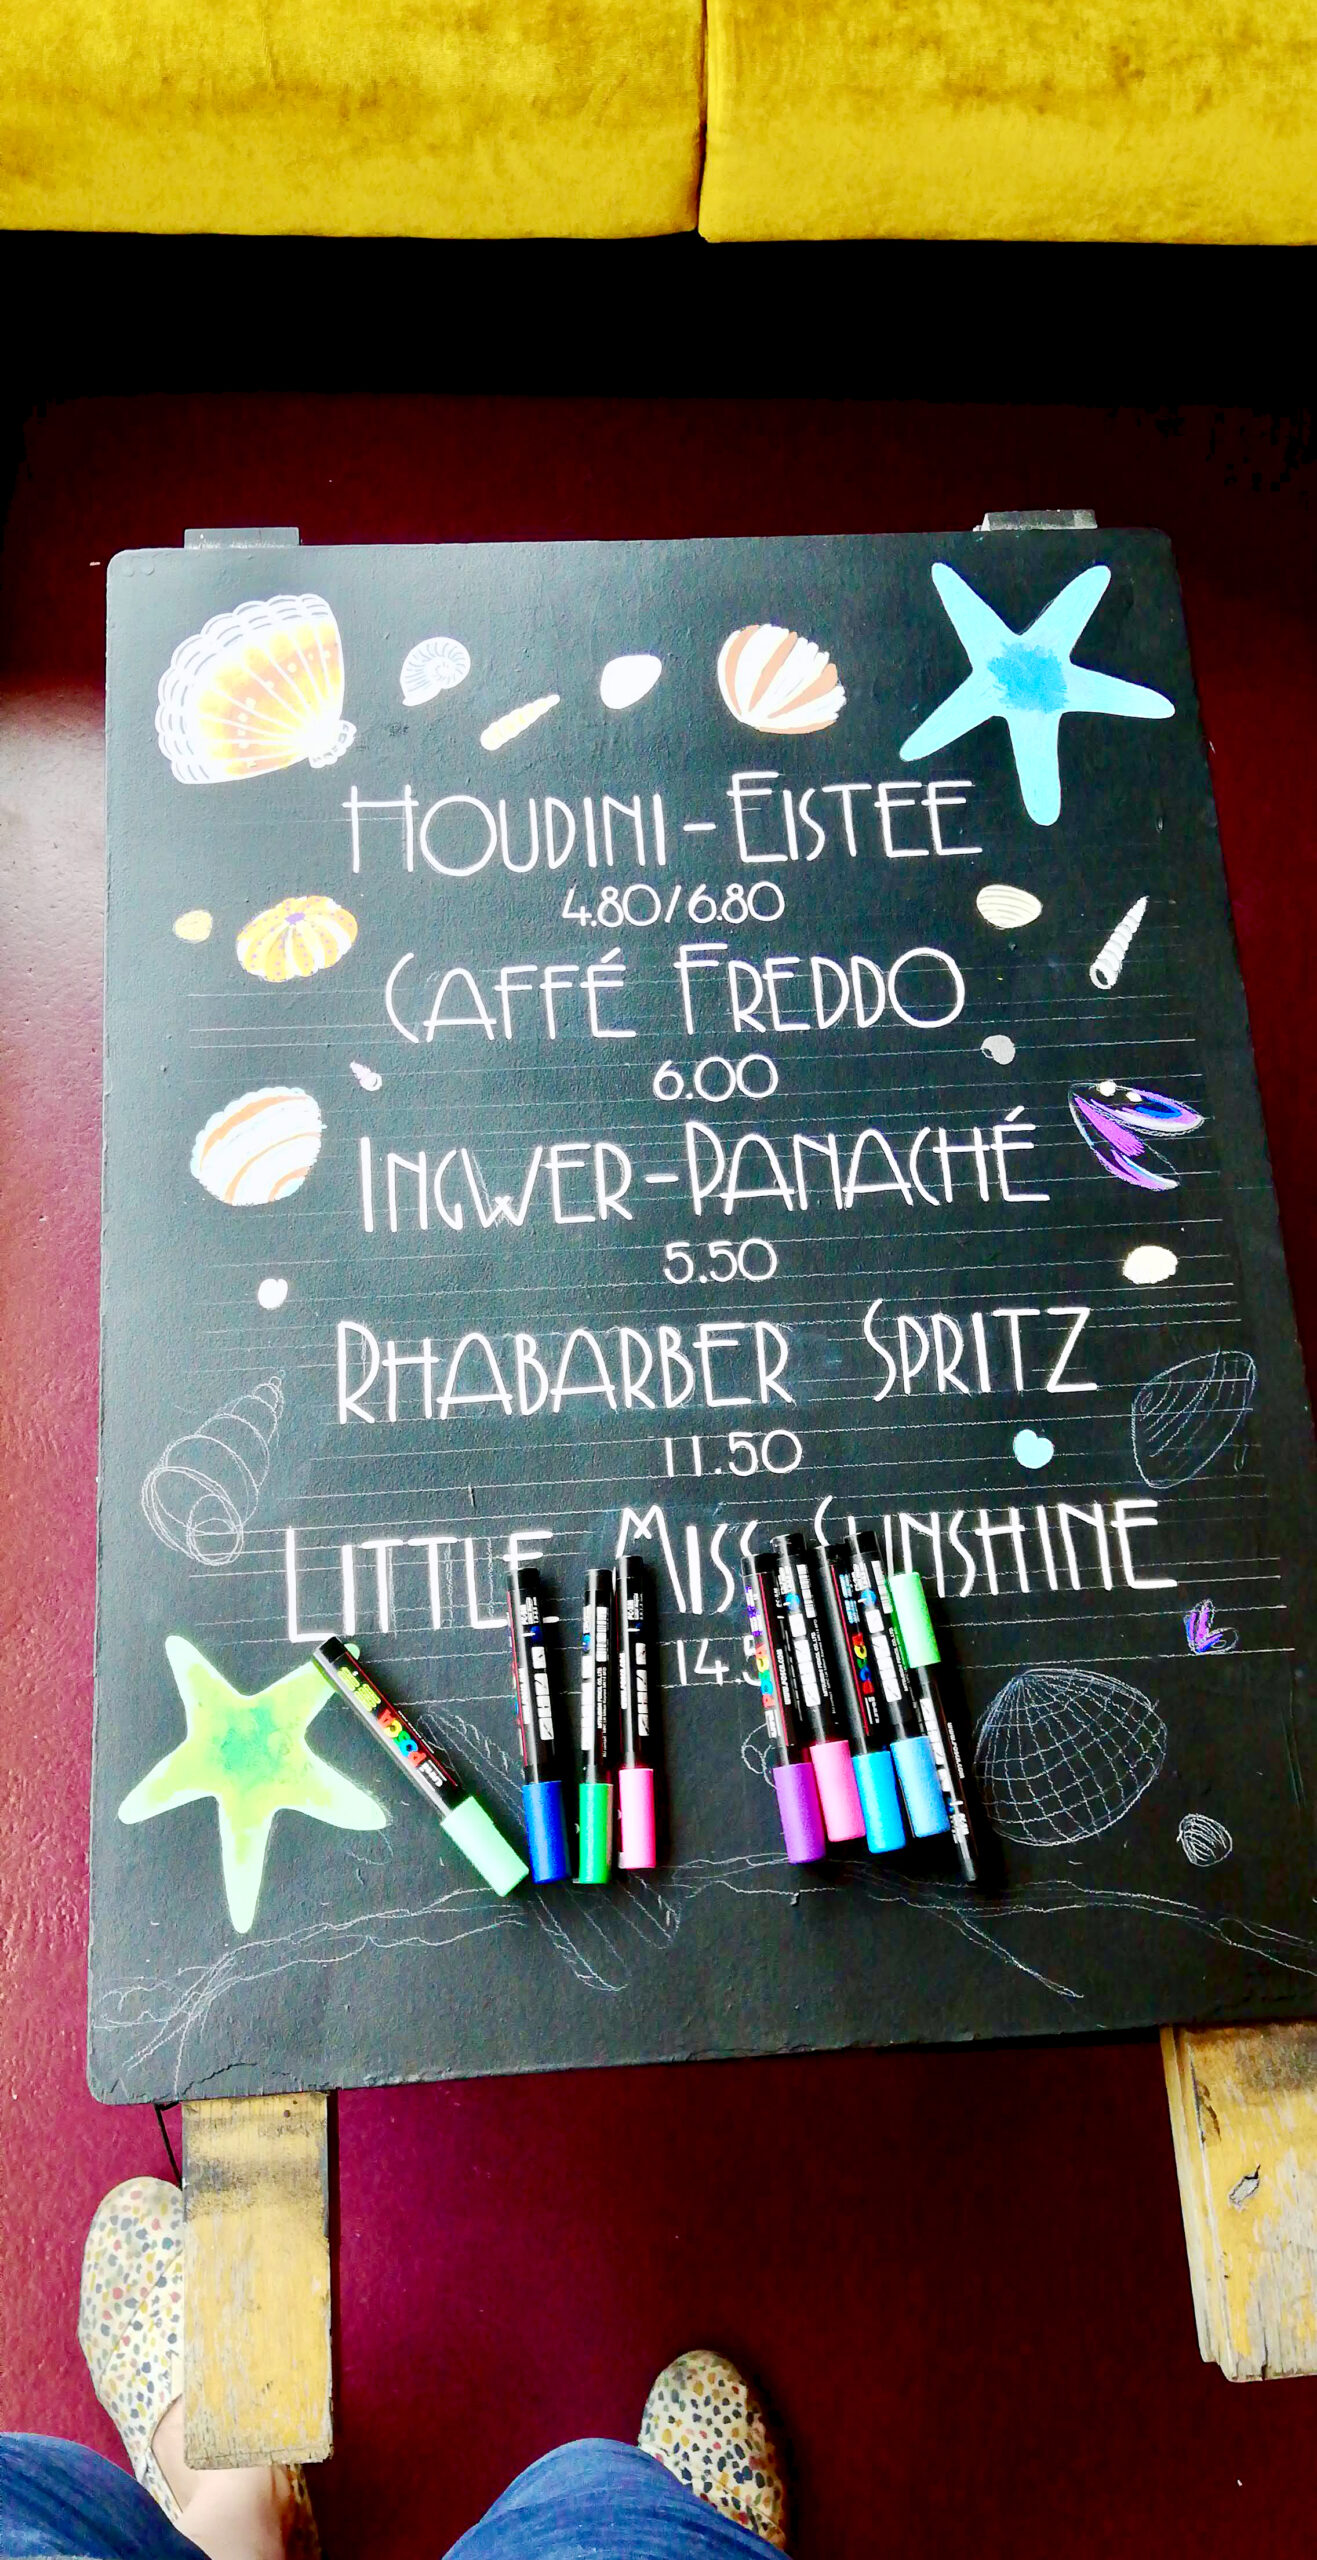 HOUDINI-EISTEE
4.80/6.80
CAFFÉ FREDDO
6.00
INGWER-PANACHÉ
5.50
RHABARBER SPRITZ
11.50
LITTLE MISS SUNSHINE
14.5
POSCA
POSCA
POSCA